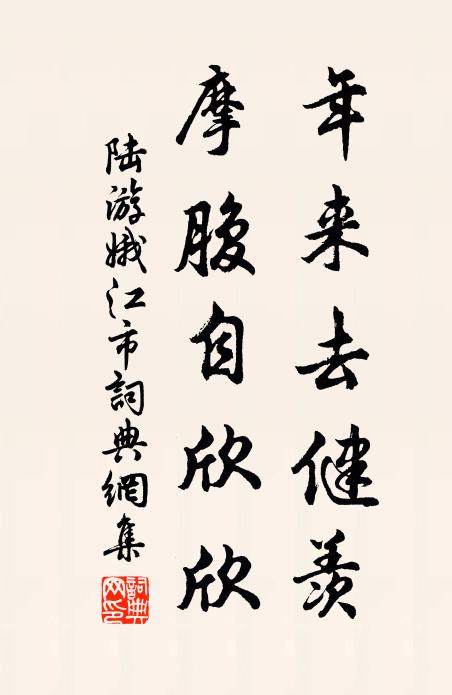 年来去健羡
摩腹自欣欣
陆游娥江市詞典網集
詞典網印